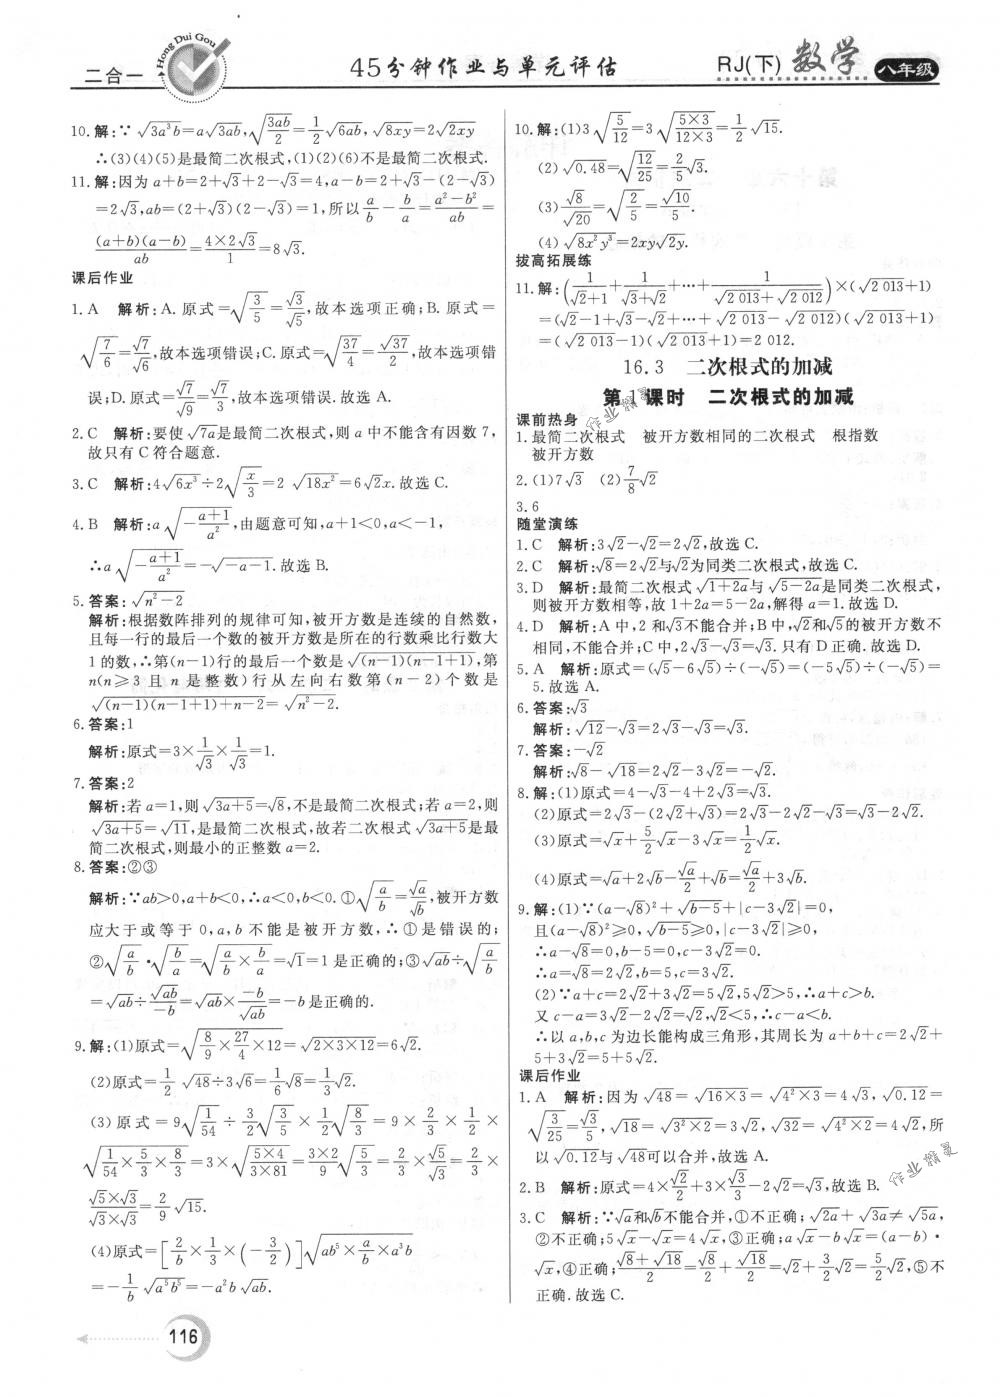 Hong Dui Gou
二合一
45分钟作业与单元评估
RJ(下) 数学 八年级
10.解:∵√(3a³b)=a√(3ab),√(3ab/2)=1/2√(6ab),√(8xy)=2√(2xy)
∴(3)(4)(5)是最简二次根式,(1)(2)(6)不是最简二次根式.
11.解:因为a+b=2+√3+2-√3=4,a-b=2+√3-(2-√3)
=2√3,ab=(2+√3)(2-√3)=1,所以a/b-b/a=(a²-b²)/ab=
(a+b)(a-b)/ab=(4×2√3)/1=8√3.
课后作业
1.A 解析:A.原式=√(3/5)=√3/√5,故本选项正确;B.原式=
√(7/6)=√7/√6,故本选项错误;C.原式=√(37/4)=√37/2,故本选项错
误;D.原式=√7/√9=√7/3,故本选项错误.故选A.
2.C 解析:要使√(7a)是最简二次根式,则a中不能含有因数7,
故只有C符合题意.
3.C 解析:4√(6x³)÷2√(x/3)=2√(18x²)=6√2x.故选C.
4.B 解析:a√(-(a+1)/a²),由题意可知,a+1<0,a<-1,
∴a√(-(a+1)/a²)=-√(-a-1).故选B.
5.答案:√(n²-2)
解析:根据数阵排列的规律可知,被开方数是连续的自然数,
且每一行的最后一个数的被开方数是所在的行数乘比行数大
1的数,∴第(n-1)行的最后一个数是√((n-1)(n-1+1)),第
n(n≥3且n是整数)行从左向右数第(n-2)个数是
√((n-1)(n-1+1)+n-2)=√(n²-2).
6.答案:1
解析:原式=3×1/√3×1/√3=1.
7.答案:2
解析:若a=1,则√(3a+5)=√8,不是最简二次根式;若a=2,则
√(3a+5)=√11,是最简二次根式,故若二次根式√(3a+5)是最
简二次根式,则最小的正整数a=2.
8.答案:②③
解析:∵ab>0,a+b<0,∴a<0,b<0.①√(a/b)=√a/√b,被开方数
应大于或等于0,a,b不能是被开方数,∴①是错误的;
②√(a/b)·√(b/a)=√(a/b×b/a)=√1=1是正确的;③√(ab)÷√(a/b)
=√(ab)÷√(ab)/(-b)=√(ab)×(-b)/√(ab)=-b是正确的.
9.解:(1)原式=√(8/9×27/4×12)=√(2×3×12)=6√2.
(2)原式=1/2√48÷3√6=1/6√8=1/3√2.
(3)原式=9√(1/54)÷3/2√(3/5)×1/2√(8/3)=9×2/3×1/2×
√(1/54×5/3×8/3)=3×√((5×4)/(3×81))=(3×2)/9√(5/3)=2/3×√5/√3=2/3×
(√5×√3)/(√3×√3)=2/9√15.
(4)原式=[2/b×1/3×(-3/2)]√(ab⁵×a/b×a³b)
=-1/b√(a⁵b⁵)=-a²b√(ab).
10.解:(1)3√(5/12)=3√((5×3)/(12×3))=1/2√15.
(2)√0.48=√(12/25)=2/5√3.
(3)√8/√20=√(2/5)=√10/5.
(4)√(8x²y³)=2xy√(2y).
拔高拓展练
11.解:(1/(√2+1)+1/(√3+√2)+…+1/(√2 013+√2 012))×(√2 013+1)
=(√2-1+√3-√2+…+√2 013-√2 012)(√2 013+1)
=(√2 013-1)(√2 013+1)=2 012.
16.3 二次根式的加减
第1课时 二次根式的加减
课前热身
1.最简二次根式 被开方数相同的二次根式 根指数
被开方数
2.(1)7√3 (2)7/8√2
3.6
随堂演练
1.C 解析:3√2-√2=2√2,故选C.
2.C 解析:√8=2√2与√2为同类二次根式,故选C.
3.D 解析:最简二次根式√(1+2a)与√(5-2a)是同类二次根式,
则被开方数相等,故1+2a=5-2a,解得a=1.故选D.
4.D 解析:A中,2和√3不能合并;B中,√2和√5的被开方数不
相同,不能合并;C中,2√3-√3=√3.只有D正确.故选D.
5.A 解析:原式=(√5-6√5)÷(-√5)=(-5√5)÷(-√5)=
5.故选A.
6.答案:√3
解析:√12-√3=2√3-√3=√3.
7.答案:-√2
解析:√8-√18=2√2-3√2=-√2.
8.解:(1)原式=4-√3-4+2√3=√3.
(2)原式=2√3-(2√2+√3)=2√3-2√2-√3=√3-2√2.
(3)原式=√x+5/2√x-3√x=1/2√x.
(4)原式=√a+2√b-√a/2+√b=√a/2+3√b.
9.解:(1)∵(a-√8)²+√(b-5)+|c-3√2|=0,
且(a-√8)²≥0,√(b-5)≥0,|c-3√2|≥0,
∴a-√8=0,b-5=0,c-3√2=0.
∴a=√8=2√2,b=5,c=3√2.
(2)∵a+c=2√2+3√2=5√2,5√2>5,∴a+c>b.
又c-a=3√2-2√2=√2,√2<5,∴c-a<b.
∴以a,b,c为边长能构成三角形,其周长为a+b+c=2√2+
5+3√2=5+5√2.
课后作业
1.A 解析:因为√48=√(16×3)=√(4²×3)=4√3,√0.12=
√(3/25)=√3/5,√18=√(3²×2)=3√2,√32=√(4²×2)=4√2,所
以√0.12与√48可以合并,故选A.
2.B 解析:原式=4×√2/2+3×√3/3-2√2=√3,故选B.
3.C 解析:∵√a和√b不能合并,①不正确;√(2a)+√(3a)≠√(5a),
②不正确;5√x-√x=4√x,③正确;a√x-b√x=(a-b)·
√x,④正确;(√8+√18)/2=√8/2+√18/2=√2+3/2√2=5/2√2,⑤不
正确.故选C.
作业精灵
作业精灵
116